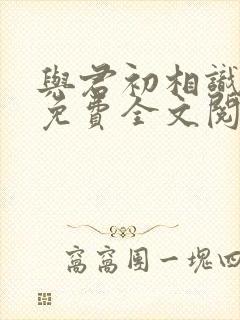 與君初相識
免費全文閱
窩窩團一塊四